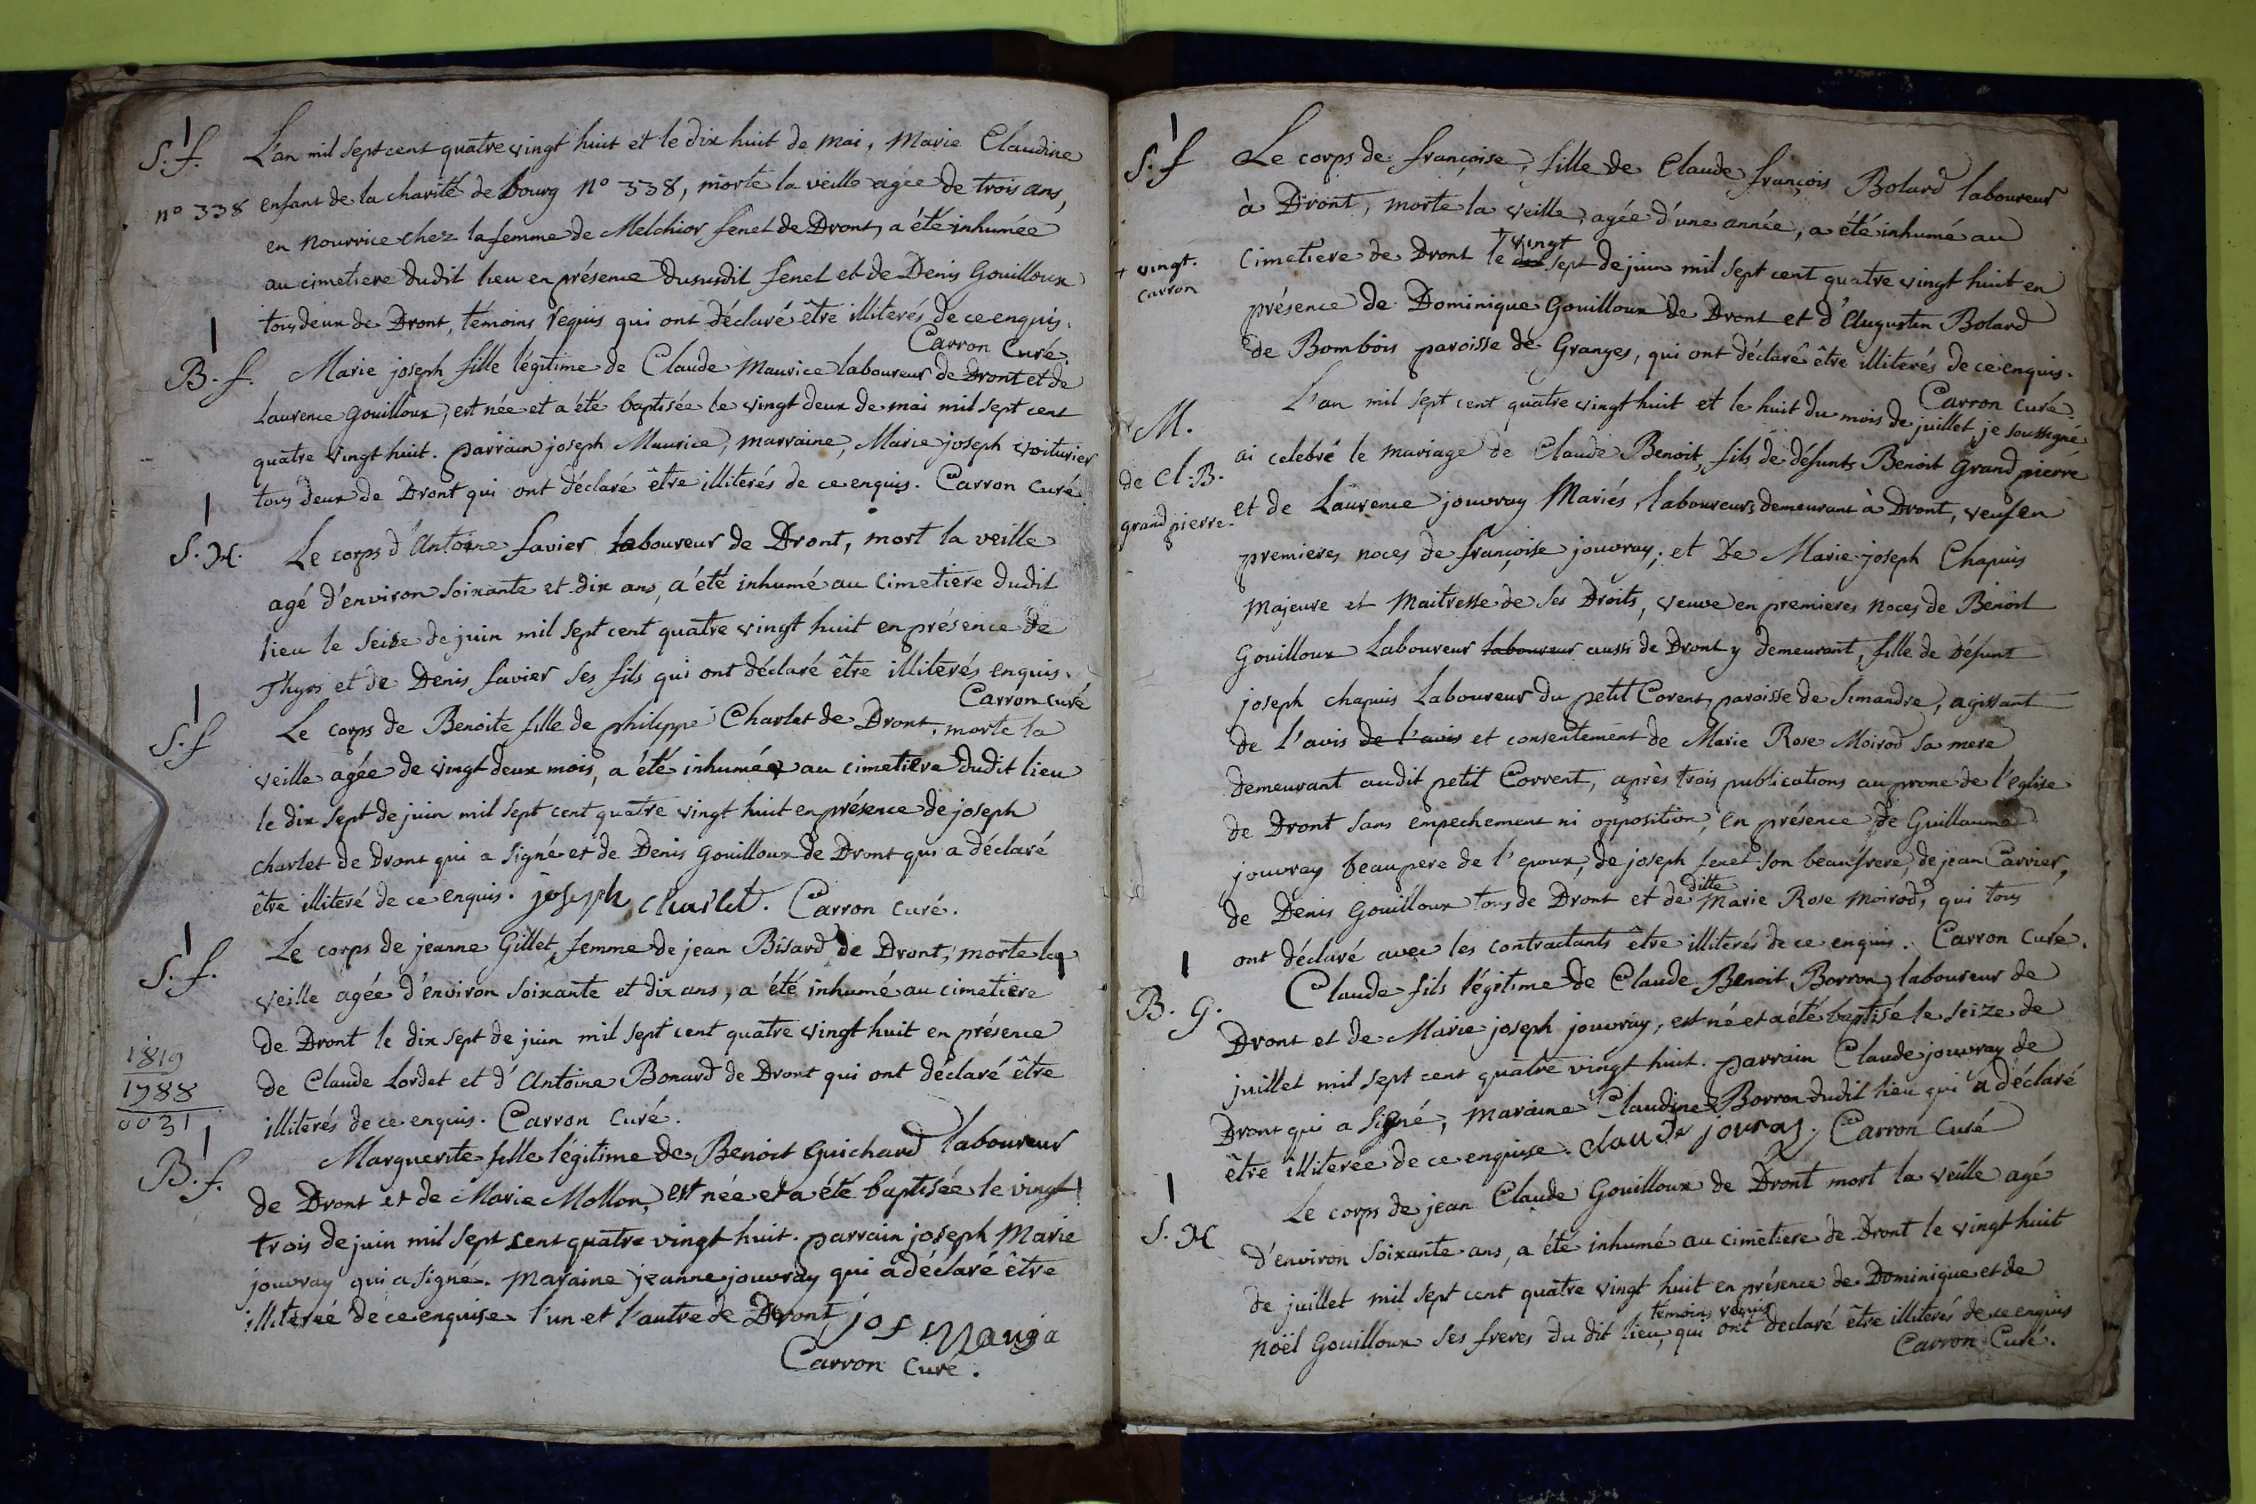 S. f.
L'an mil sept cent quatre vingt huit et le dix huit de mai, Marie Claudine
n° 338
enfant de la charité de bourg n° 338, morte la veille agée de trois ans,
en nourrice chez la femme de Melchior fenet de Dront, a été inhumée
au cimetiere dudit lieu en présence dususdit fenet et de Denis Gouilloux
tous deux de Dront, témoins requis qui ont déclaré être illiterés de ce enquis.
Carron Curé
B. f.
Marie joseph fille légitime de Claude Maurice laboureur de Dront et de
Laurence Gouilloux, est née et a été baptisée le vingt deux de mai mil sept cent
quatre vingt huit. parrain joseph Maurice, marraine, Marie joseph voiturier
tous deux de Dront qui ont déclaré être illiterés de ce enquis. Carron Curé
S. H.
Le corps d'Antoine favier laboureur de Dront, mort la veille
agé d'environ soixante et dix ans, a été inhumé au Cimetiere dudit
lieu le seize de juin mil sept cent quatre vingt huit en présence de
Thyrs et de Denis favier ses fils qui ont déclaré être illiterés enquis.
Carron curé
S. f
Le corps de Benoite fille de philippe Charlet de Dront, morte la
veille agée de vingt deux mois, a été inhumée au cimetiere dudit lieu
le dix sept de juin mil sept cent quatre vingt huit en présence de joseph
charlet de Dront qui a signé et de Denis Gouilloux de Dront qui a déclaré
être illiteré de ce enquis. joseph charlet. Carron curé.
S. f.
Le corps de jeanne Gillet, femme de jean Bisard de Dront, morte la
veille agée d'environ soixante et dix ans, a été inhumé au cimetiere
de Dront le dix sept de juin mil sept cent quatre vingt huit en présence
de Claude Lordet et d'Antoine Bonard de Dront qui ont déclaré être
illiterés de ce enquis. Carron Curé.
1819
1788
0031
B. f.
Marguerite fille légitime de Benoit Guichard laboureur
de Dront et de Marie Mollon, est née et a été baptisée le vingt
trois de juin mil sept cent quatre vingt huit. parrain joseph Marie
jouvray qui a signé. Maraine jeanne jouvray qui a déclaré être
illiterée de ce enquise l'un et l'autre de Dront
Carron Curé.
S. f
Le corps de françoise, fille de Claude françois Bolard laboureur
à Dront, morte la veille, agée d'une année, a été inhumé au
+ vingt
+ vingt.
Carron
Cimetiere de Dront le dix sept de juin mil sept cent quatre vingt huit en
présence de Dominique Gouilloux de Dront et d'Augustin Bolard
de Bombois paroisse de Granges, qui ont déclaré être illiterés de ce enquis.
Carron curé.
M.
de Cl. B.
grandpierre.
L'an mil sept cent quatre vingt huit et le huit du mois de juillet je soussigné
ai celebré le mariage de Claude Benoit, fils de défunts Benoit Grandpierre
et de Laurence jouvray Mariés, laboureurs demeurant à Dront, veuf en
premieres noces de françoise jouvray; et de Marie joseph Chapuis
Majeure et Maitresse de ses Droits, veuve en premieres noces de Benoit
Gouilloux Laboureur laboureur aussi de Dront y demeurant, fille de défunt
joseph chapuis Laboureur du petit Corent, paroisse de Simandre, agissant
de l'avis de l'avis et consentement de Marie Rose Moirod sa mere
demeurant audit petit Corvent, après trois publications au prone de l'eglise
de Dront sans empechement ni opposition, en présence de Guillaume
jouvray beaupere de l'epoux, de joseph fenet son beaufrere, de jean Carrier,
ditte
de Denis Gouilloux tous de Dront et de Marie Rose Moirod, qui tous
ont déclaré avec les contractants être illiterés de ce enquis. Carron Curé.
B. G.
Claude fils légitime de Claude Benoit Borron, laboureur de
Dront et de Marie joseph jouvray, est né et a été baptisé le seize de
juillet mil sept cent quatre vingt huit. parrain Claude jouvray de
Dront qui a signé, Maraine Claudine Borron dudit lieu qui a déclaré
être illiterée de ce enquise. claude jouray. Carron Curé
S. H
Le corps de jean Claude Gouilloux de Dront mort la veille agé
d'environ soixante ans, a été inhumé au cimetiere de Dront le vingt huit
de juillet mil sept cent quatre vingt huit en présence de Dominique et de
témoins requis
Noël Gouilloux ses freres du dit lieu, qui ont déclaré être illiterés de ce enquis
Carron Curé.